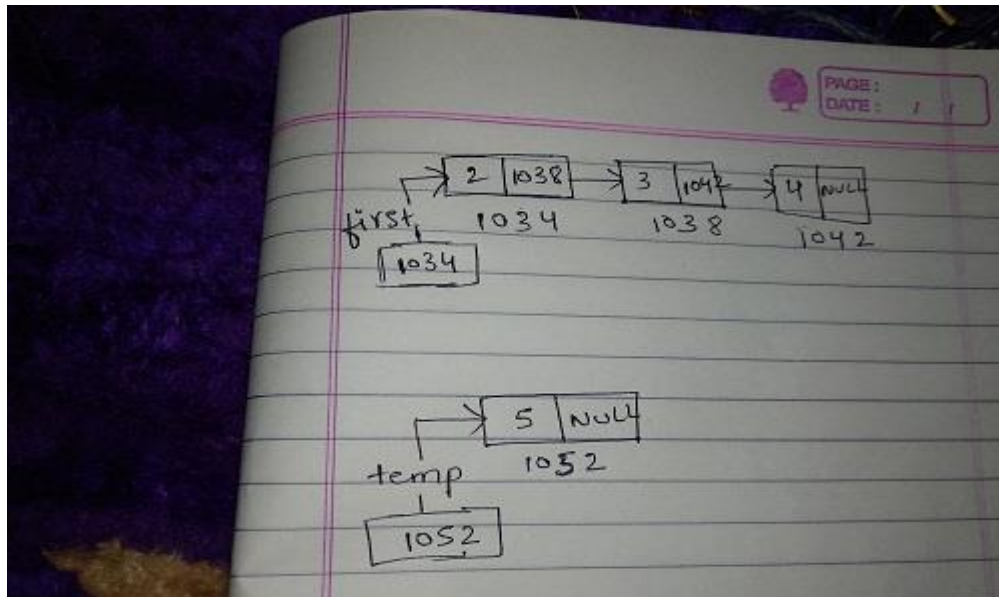 PAGE:
DATE: / /
2 1038 3 1042 4 NULL
first 1034 1038 1042
1034
5 NULL
1052
temp
1052